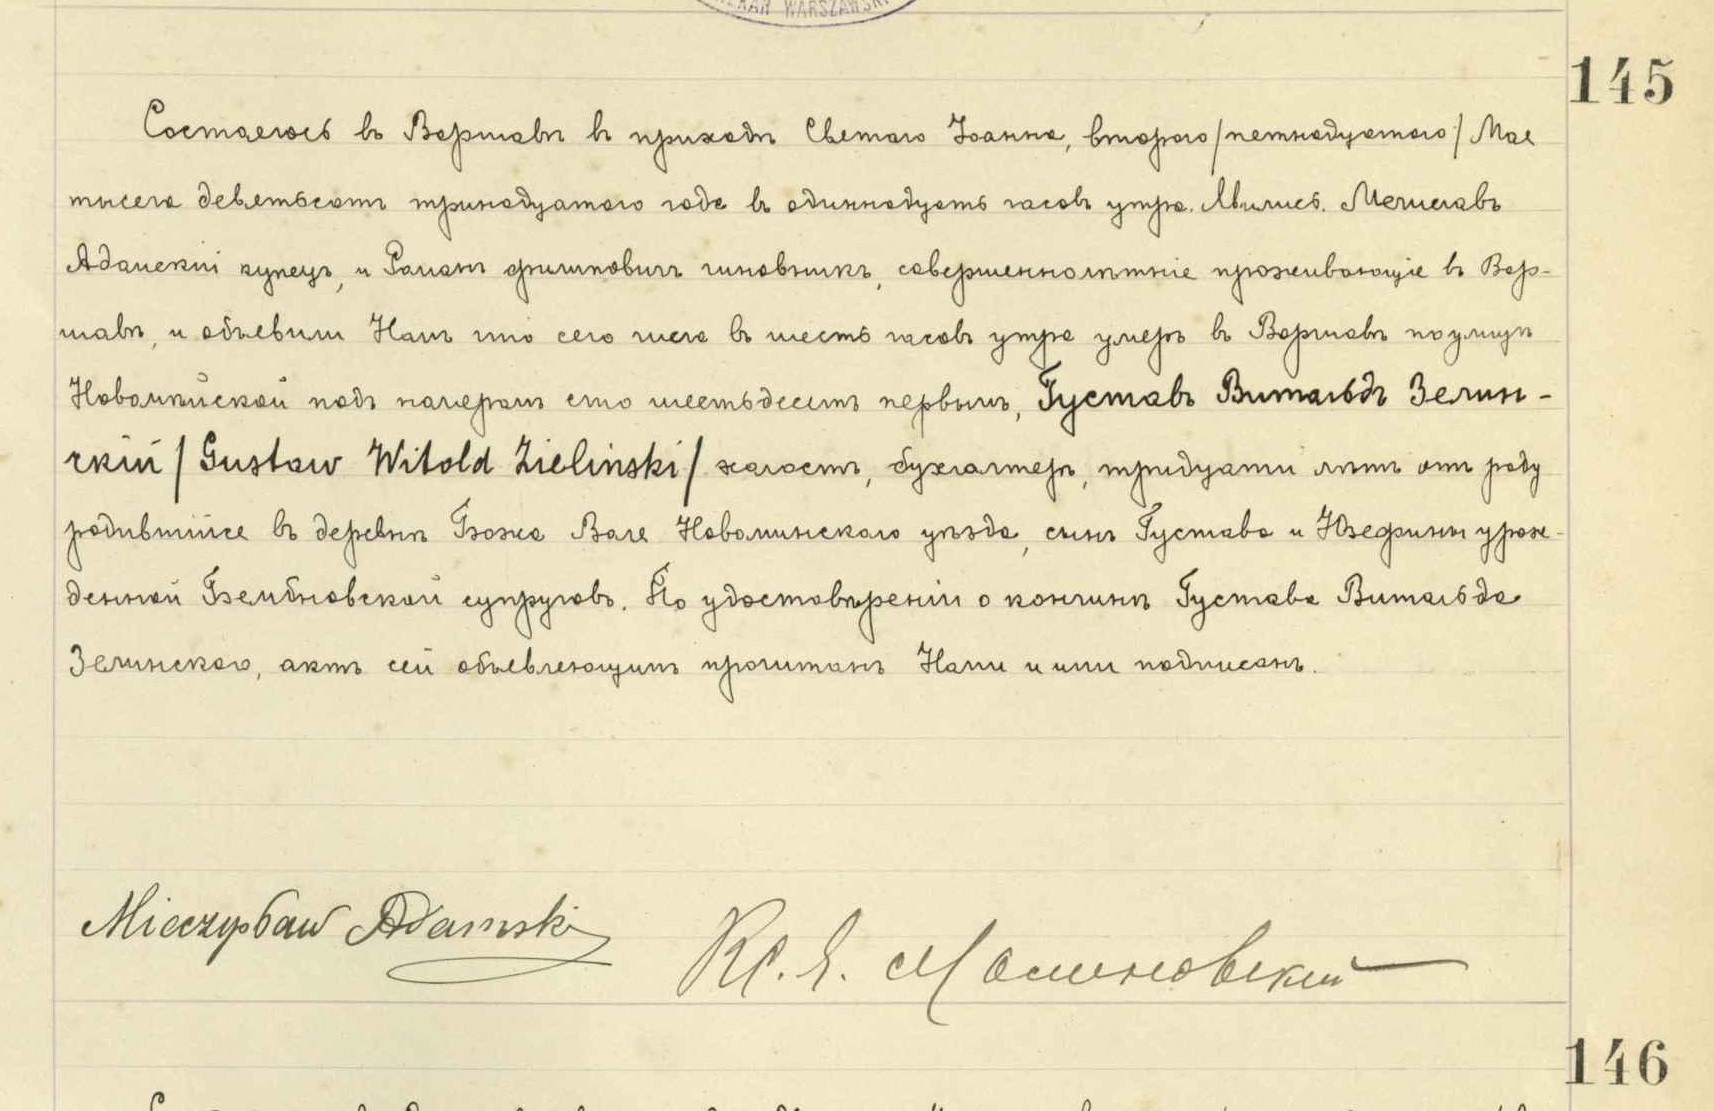 KAN WARSZAWSKI
145
Состаелось въ Варшавѣ въ приходѣ Светаго Іоанна, второго /петнадцатого/ Мае
тысеча деветьсотъ тринадцатого года въ одиннадцать часовъ утра. Явились. Мечиславъ
Адамскій купецъ, и Романъ Филиповичъ чиновникъ, совершеннолѣтніе проживающіе въ Вар-
шавѣ, и объевили Намъ что сего числа въ шесть часовъ утра умеръ въ Варшавѣ по улицѣ
Новолипской подъ номеромъ сто шестьдесетъ первымъ, Густавъ Витольдъ Зелин-
скій / Gustaw Witold Zielinski / холостъ, бухгалтеръ, тридцати лѣтъ отъ роду
родившійсе въ деревнѣ Божа Воле Новоминского уѣзда, сынъ Густава и Юзефины урож-
денной Бембновской супруговъ. По удостовѣреніи о кончинѣ Густава Витольда
Зелинского, актъ сей объевлеющимъ прочитанъ Нами и ими подписанъ.
Mieczysław Adamski
Кс. Я. Малиновскій
146